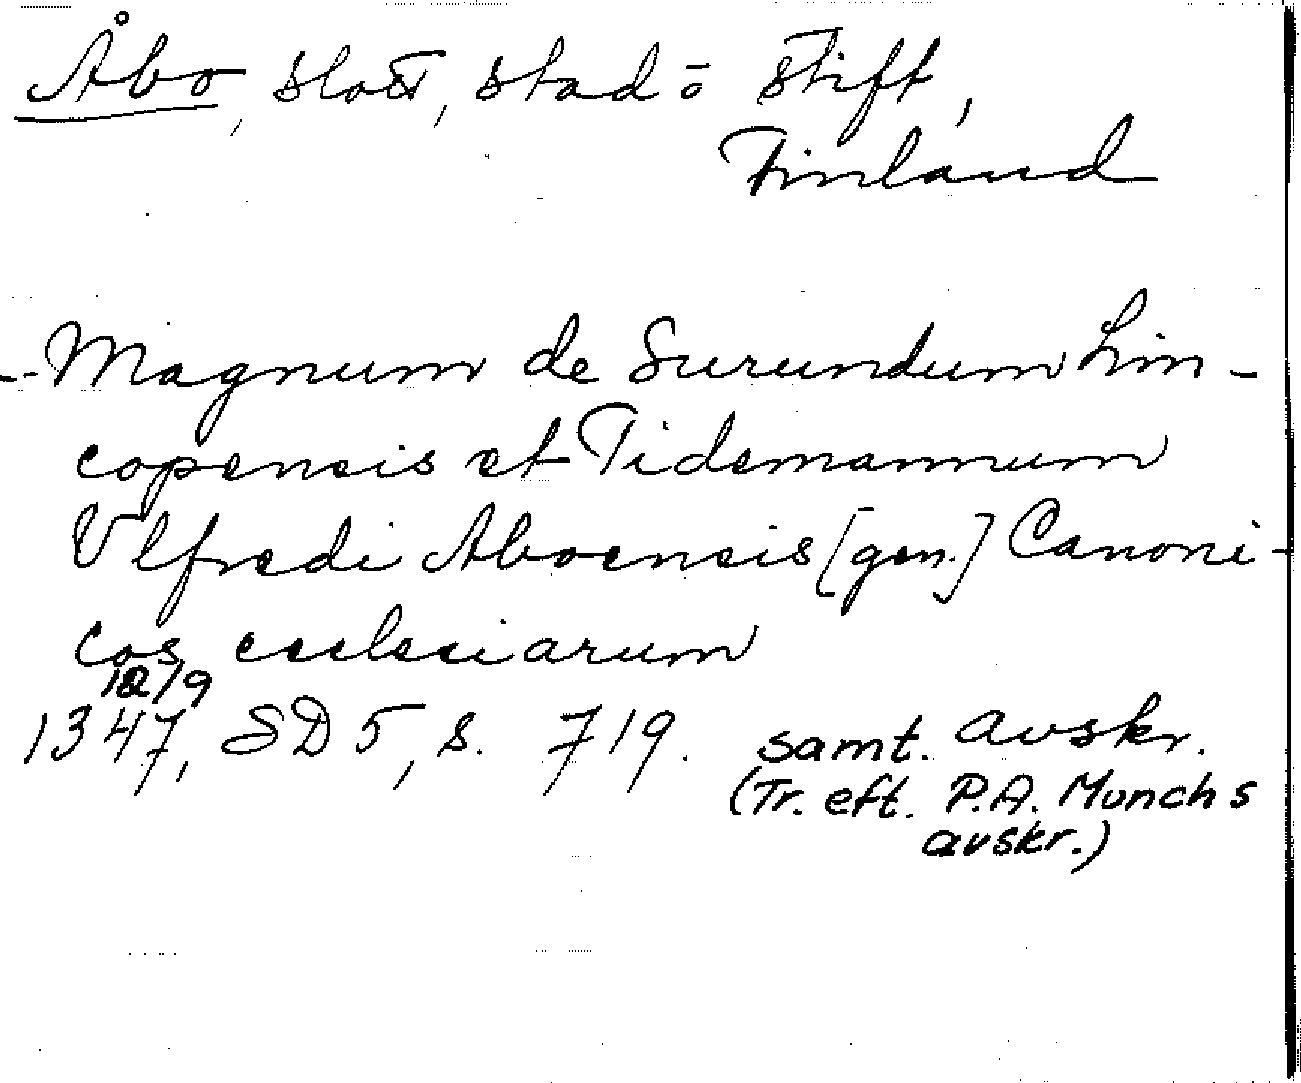 Åbo, slott, stad o stift,
Finland
-- Magnum de Surundum Lin-
copensis et Tidemannum
Ulfredi Aboensis [gen.] Canoni-
cos ecclesiarum
12/9
1347, SD 5, s. 719. samt. avskr.
(Tr. eft. P.A. Munchs
avskr.)